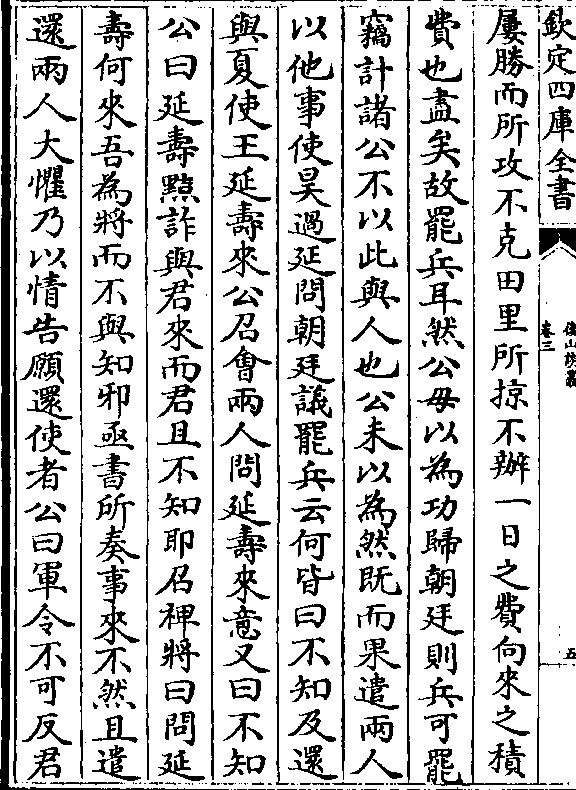 欽定四庫全書
卷三
五
屢勝而所攻不克田里所掠不辦一日之費向來之積
費也盡矣故罷兵耳然公毋以為功歸朝廷則兵可罷
竊計諸公不以此與人也公未以為然既而果遣兩人
以他事使昊過延問朝廷議罷兵云何皆曰不知及還
與夏使王延壽來公召會兩人問延壽來意又曰不知
公曰延壽黠詐與君來而君且不知耶召裨將曰問延
壽何來吾為將而不與知邪亟書所奏事來不然且遣
還兩人大懼乃以情告願還使者公曰軍令不可反君